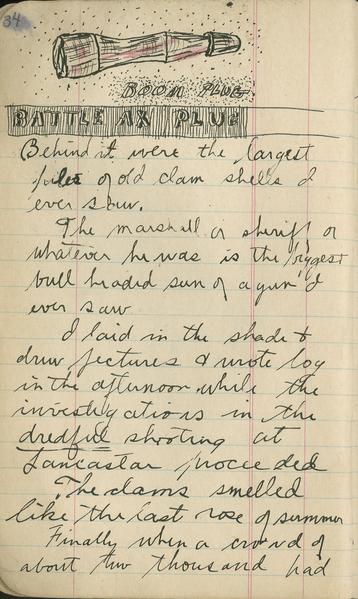 34
BOOM PLUG
BATTLE AX PLUG
Behind it were the largest
piles of old clam shells I
ever saw.
The marshall or sheriff or
whatever he was is the biggest
bull headed sun of a gun I'd
ever saw
I laid in the shade &
drew pectures & wrote log
in the afternoon while the
investigations in the
dredful shooting at
Lancastar proceeded
The clams smelled
like the last rose of summer
Finally when a crowd of
about two thousand had